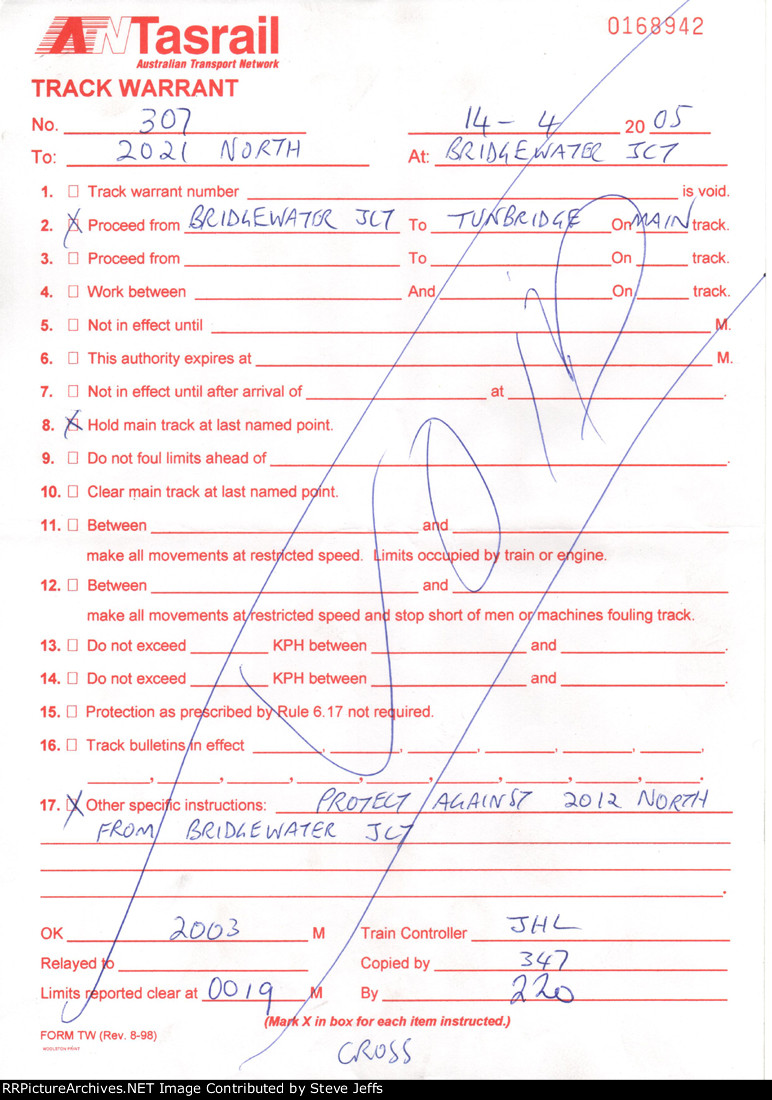 ATN Tasrail
Australian Transport Network
0168942
TRACK WARRANT
No. 307 14 - 4 20 05
To: 2021 NORTH At: BRIDGEWATER JCT
1. Track warrant number is void.
2. X Proceed from BRIDGEWATER JCT To TUNBRIDGE On MAIN track.
3. Proceed from To On track.
4. Work between And On track.
5. Not in effect until M.
6. This authority expires at M.
7. Not in effect until after arrival of at .
8. X Hold main track at last named point.
9. Do not foul limits ahead of .
10. Clear main track at last named point.
11. Between and
make all movements at restricted speed. Limits occupied by train or engine.
12. Between and
make all movements at restricted speed and stop short of men or machines fouling track.
13. Do not exceed KPH between and .
14. Do not exceed KPH between and .
15. Protection as prescribed by Rule 6.17 not required.
16. Track bulletins in effect , , , , , ,
, , , , , , , .
17. X Other specific instructions: PROTECT AGAINST 2012 NORTH
FROM BRIDGEWATER JCT
OK 2003 M Train Controller JHL
Relayed to Copied by 347
Limits reported clear at 0019 M By 220
(Mark X in box for each item instructed.)
FORM TW (Rev. 8-98)
MIDDLETON PRINT
CROSS
RRPictureArchives.NET Image Contributed by Steve Jeffs